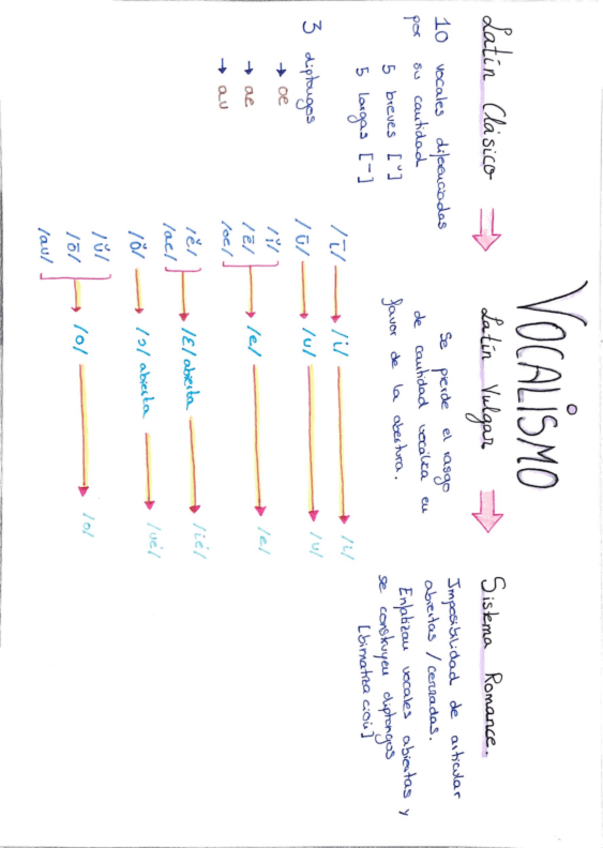 VOCALISMO
Latín Clásico ⇒ Latín Vulgar ⇒ Sistema Romance.
10 vocales diferenciadas
por su cantidad
5 breves [˘]
5 largas [-]
3 diptongos
→ oe
→ ae
→ au
Se perde el rasgo
de cantidad vocálica en
favor de la abertura.
Imposibilidad de articular
abiertas / cerradas.
Enfatizan vocales abiertas y
se construyen diptongos
[bimatización]
/ī/ → /i/ → /i/
/ū/ → /u/ → /u/
/ĭ/
/ē/ → /e/ → /e/
/oe/
/ĕ/ → /Ɛ/ abierta → /ié/
/ae/
/ŏ/ → /ɔ/ abierta → /ué/
/ŭ/
/ō/ → /o/ → /o/
/au/